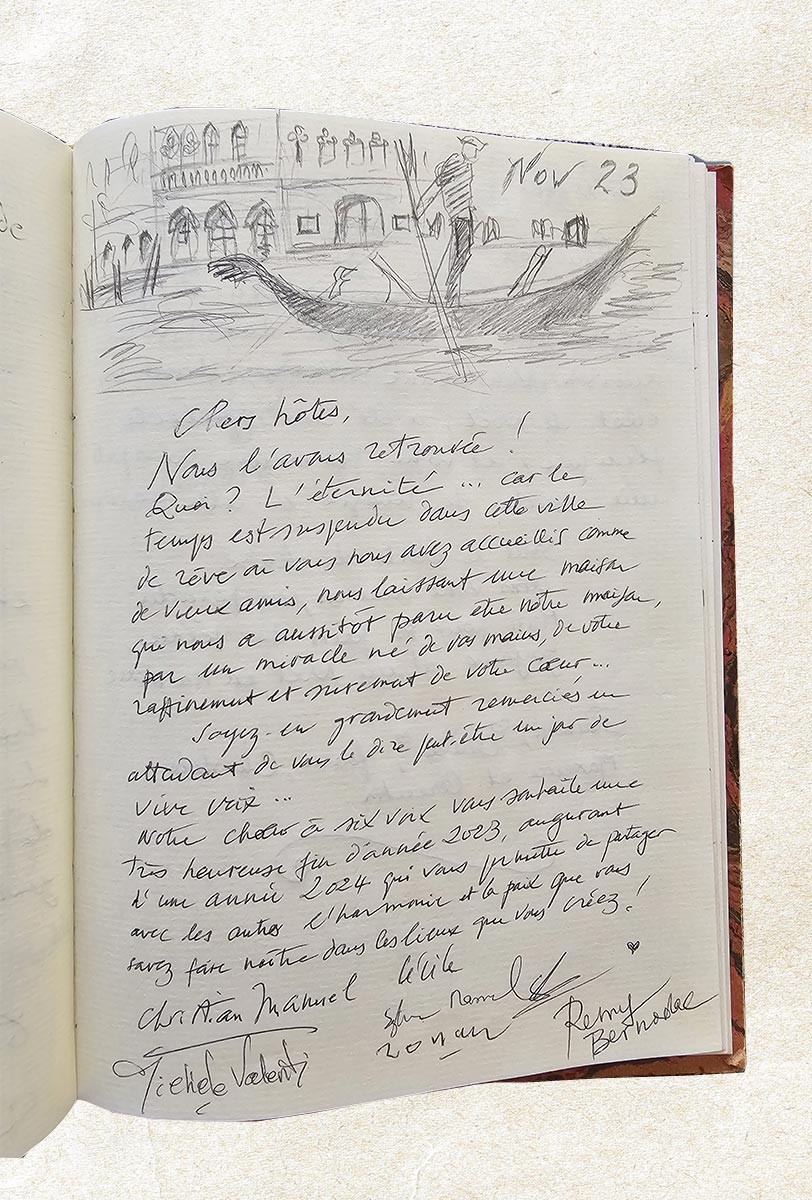 de
Nov 23
Chers hôtes,
Nous l'avons retrouvée !
Quoi ? L'éternité ... car le
temps est suspendu dans cette ville
de rêve où vous nous avez accueillis comme
de vieux amis, nous laissant une maison
qui nous a aussitôt paru être notre maison,
par un miracle né de vos mains, de votre
raffinement et sûrement de votre cœur...
Soyez-en grandement remerciés en
attendant de vous le dire peut-être un jour de
vive voix ...
Notre chœur à six voix vous souhaite une
très heureuse fin d'année 2023, augurant
d'une année 2024 qui vous permette de partager
avec les autres l'harmonie et la paix que vous
savez faire naître dans les lieux que vous créez !
Christian Manuel Cécile
Ronan
Remy
Bernadac
Michele Valenti